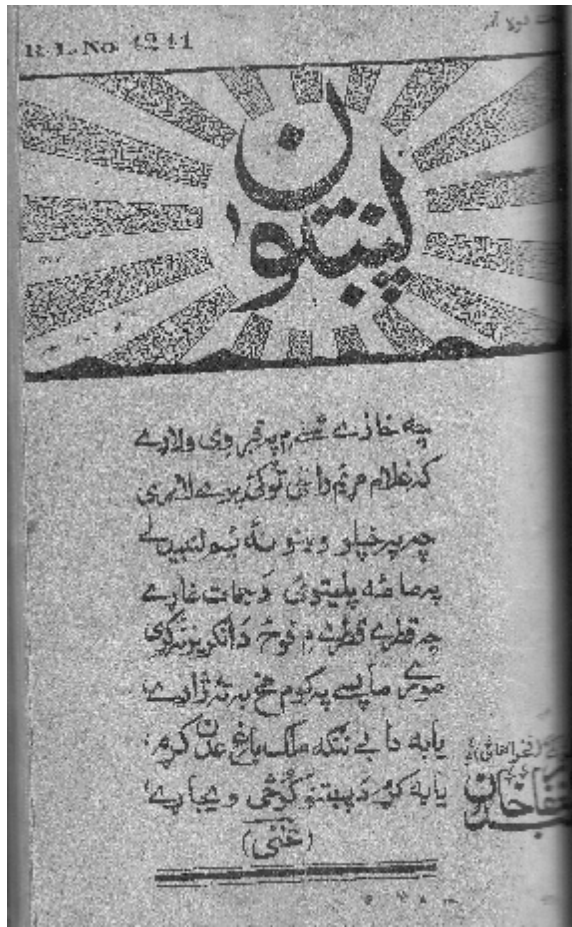 R. L. No. 4241
پښتون
چه خازے شنے م په قبر وی ولاړے
که غلام مړ یم راځئی تو کئی پرے لاړی
چه په خپلو وینو نه یم لمبیدلے
په ما مه پلیتوئ د جمات غاړے
چه قطرے قطرے م فوځ د انګریز نه کړی
مورے ما پسے په کوم مخ به ته ژاړے
یا به دا بے ننګه ملک باغ عدن کړم
یا به کړم د پښتنو کوڅی ویجاړے
(غنی)